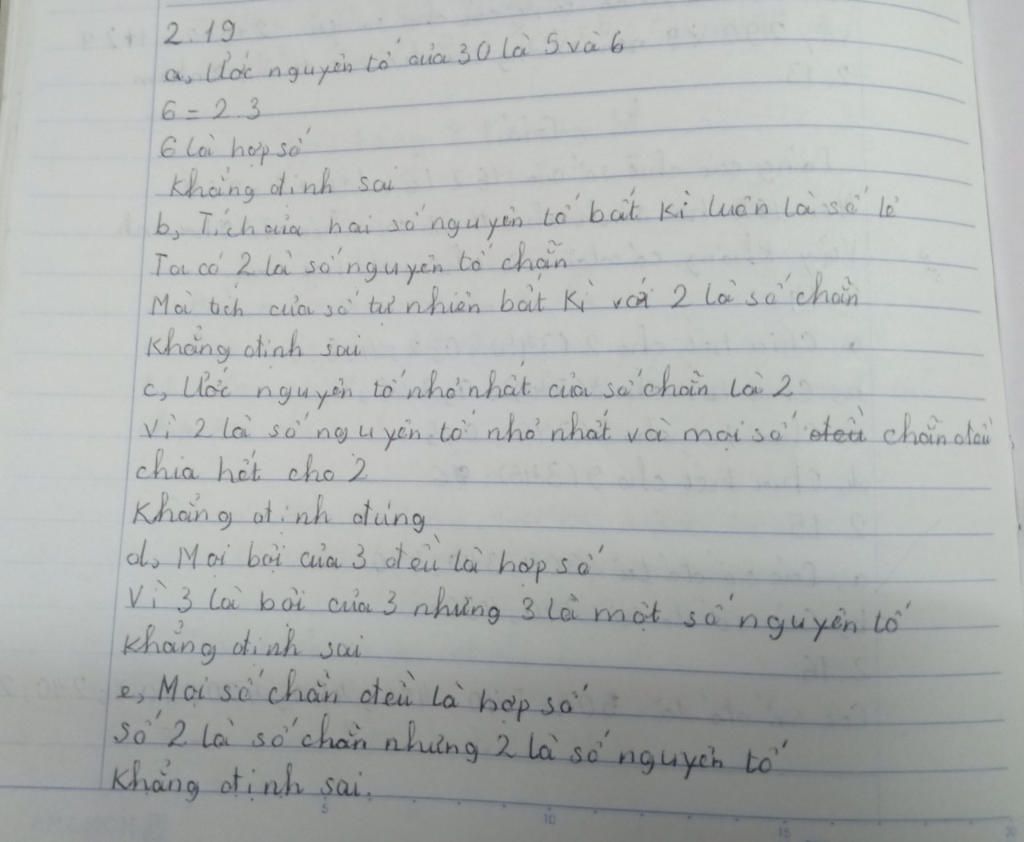 2.19
a, Ước nguyên tố của 30 là 5 và 6
6 = 2.3
6 là hợp số
Khẳng định sai
b, Tích của hai số nguyên tố bất kì luôn là số lẻ
Ta có 2 là số nguyên tố chẵn
Mà tích của số tự nhiên bất kì với 2 là số chẵn
Khẳng định sai
c, Ước nguyên tố nhỏ nhất của số chẵn là 2
Vì 2 là số nguyên tố nhỏ nhất và mọi số chẵn đều
chia hết cho 2
Khẳng định đúng
d, Mọi bội của 3 đều là hợp số
Vì 3 là bội của 3 nhưng 3 là một số nguyên tố
Khẳng định sai
e, Mọi số chẵn đều là hợp số
Số 2 là số chẵn nhưng 2 là số nguyên tố
Khẳng định sai.
5 10 15 20